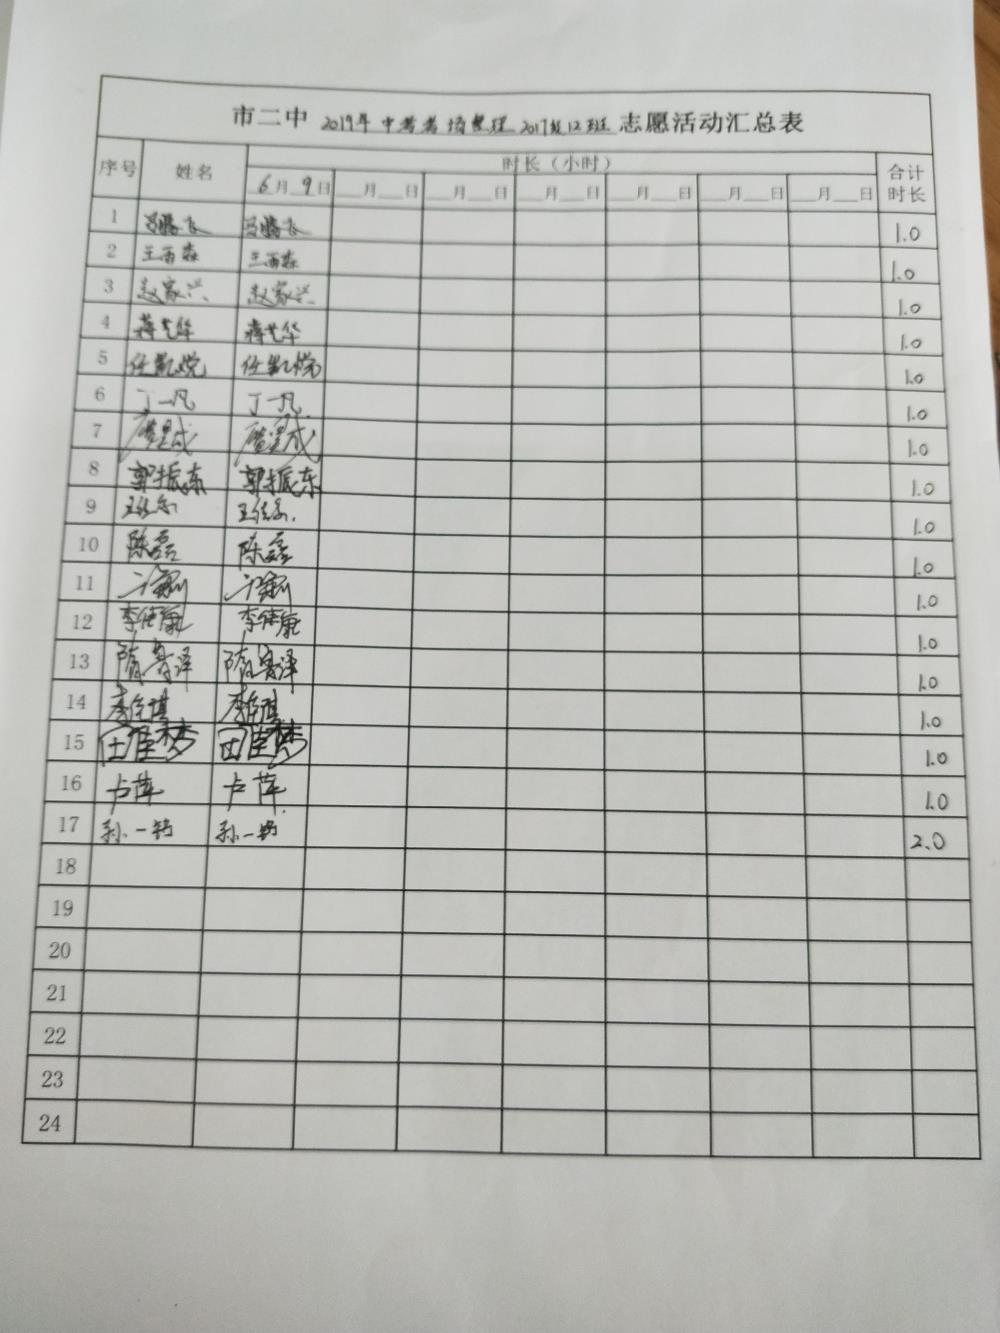 市二中 2019年 中考考场整理 2017级12班 志愿活动汇总表
序号 姓名 时长（小时） 合计时长
6月9日 __月__日 __月__日 __月__日 __月__日 __月__日 __月__日
1 吕腾飞 吕腾飞 1.0
2 王雨森 王雨森 1.0
3 赵家兴 赵家兴 1.0
4 蒋艺华 蒋艺华 1.0
5 任凯悦 任凯悦 1.0
6 丁一凡 丁一凡 1.0
7 1.0
8 郭振东 郭振东 1.0
9 1.0
10 陈磊 陈磊 1.0
11 1.0
12 李佳康 李佳康 1.0
13 1.0
14 1.0
15 田佳梦 田佳梦 1.0
16 卢萍 卢萍 1.0
17 孙一 孙一 2.0
18
19
20
21
22
23
24